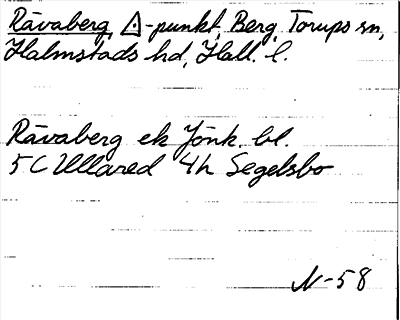 Råvaberg, △-punkt, Berg, Torups sn,
Halmstads hd, Hall. l.
Råvaberg ek Jönk. bl.
5 C Ullared 4h Segelsbo
N-58